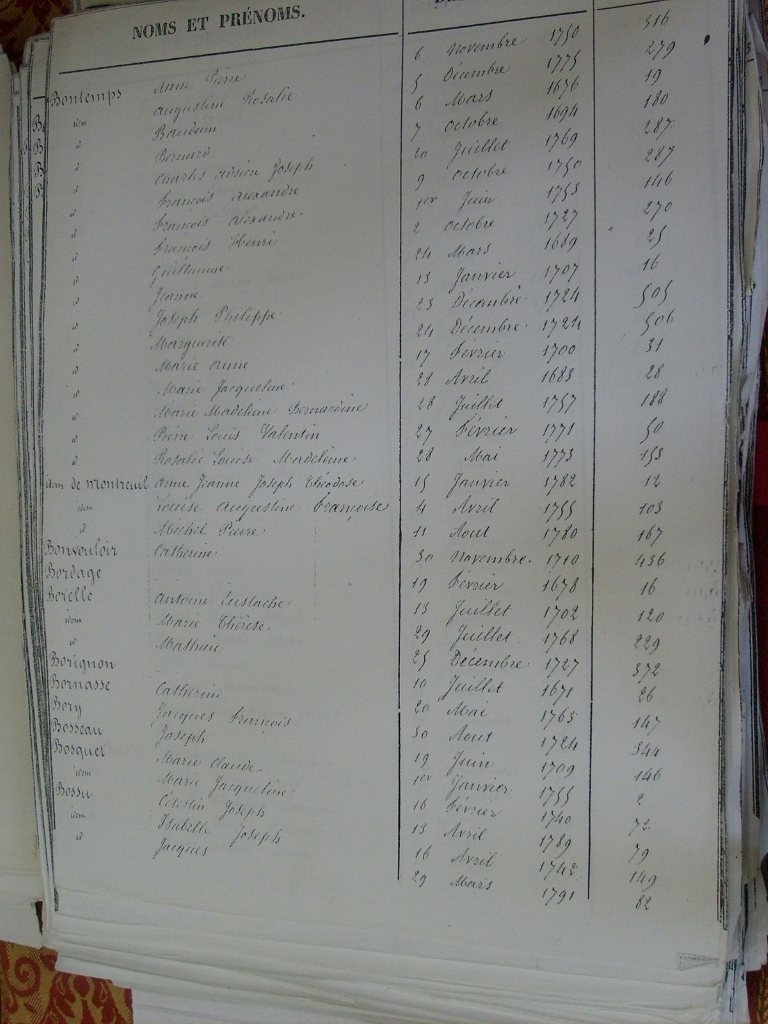 NOMS ET PRÉNOMS.
Bontemps Anne Pierre 6 Novembre 1750 316
idem Augustine Rosalie 5 Décembre 1775 279
d Baudouin 6 Mars 1676 19
d Bernard 7 Octobre 1694 180
d Charles Adrien Joseph 20 Juillet 1769 287
d François Alexandre 9 Octobre 1750 287
d François Alexandre 1er Juin 1753 146
d François Henri 2 Octobre 1727 270
d Guillaume 24 Mars 1689 25
d Jeanne 13 Janvier 1707 16
d Joseph Philippe 23 Décembre 1724 505
d Marguerite 24 Décembre 1724 506
d Marie Anne 17 Février 1700 31
d Marie Jacqueline 21 Avril 1683 28
d Marie Madeleine Bernardine 28 Juillet 1757 188
d Pierre Louis Valentin 27 Février 1771 50
d Rosalie Louise Madeleine 28 Mai 1773 153
idem de Montreuil Anne Jeanne Joseph Théodose 15 Janvier 1782 12
idem Louise Augustine Françoise 4 Avril 1755 103
d Michel Pierre 11 Aout 1780 167
Bonvouloir Catherine 30 Novembre 1710 436
Bordage 19 Février 1678 16
Borelle Antoine Eustache 13 Juillet 1702 120
idem Marie Thérèse 29 Juillet 1768 229
d Mathieu 25 Décembre 1727 372
Borignon 10 Juillet 1671 26
Bornasse Catherine 20 Mai 1763 147
Bory Jacques François 30 Aout 1724 344
Bosseau Joseph 19 Juin 1709 146
Bosquet Marie Claude 1er Janvier 1755 2
idem Marie Jacqueline 16 Février 1740 72
Bossu Célestin Joseph 13 Avril 1789 79
idem Isabelle Joseph 16 Avril 1742 149
d Jacques 29 Mars 1791 82